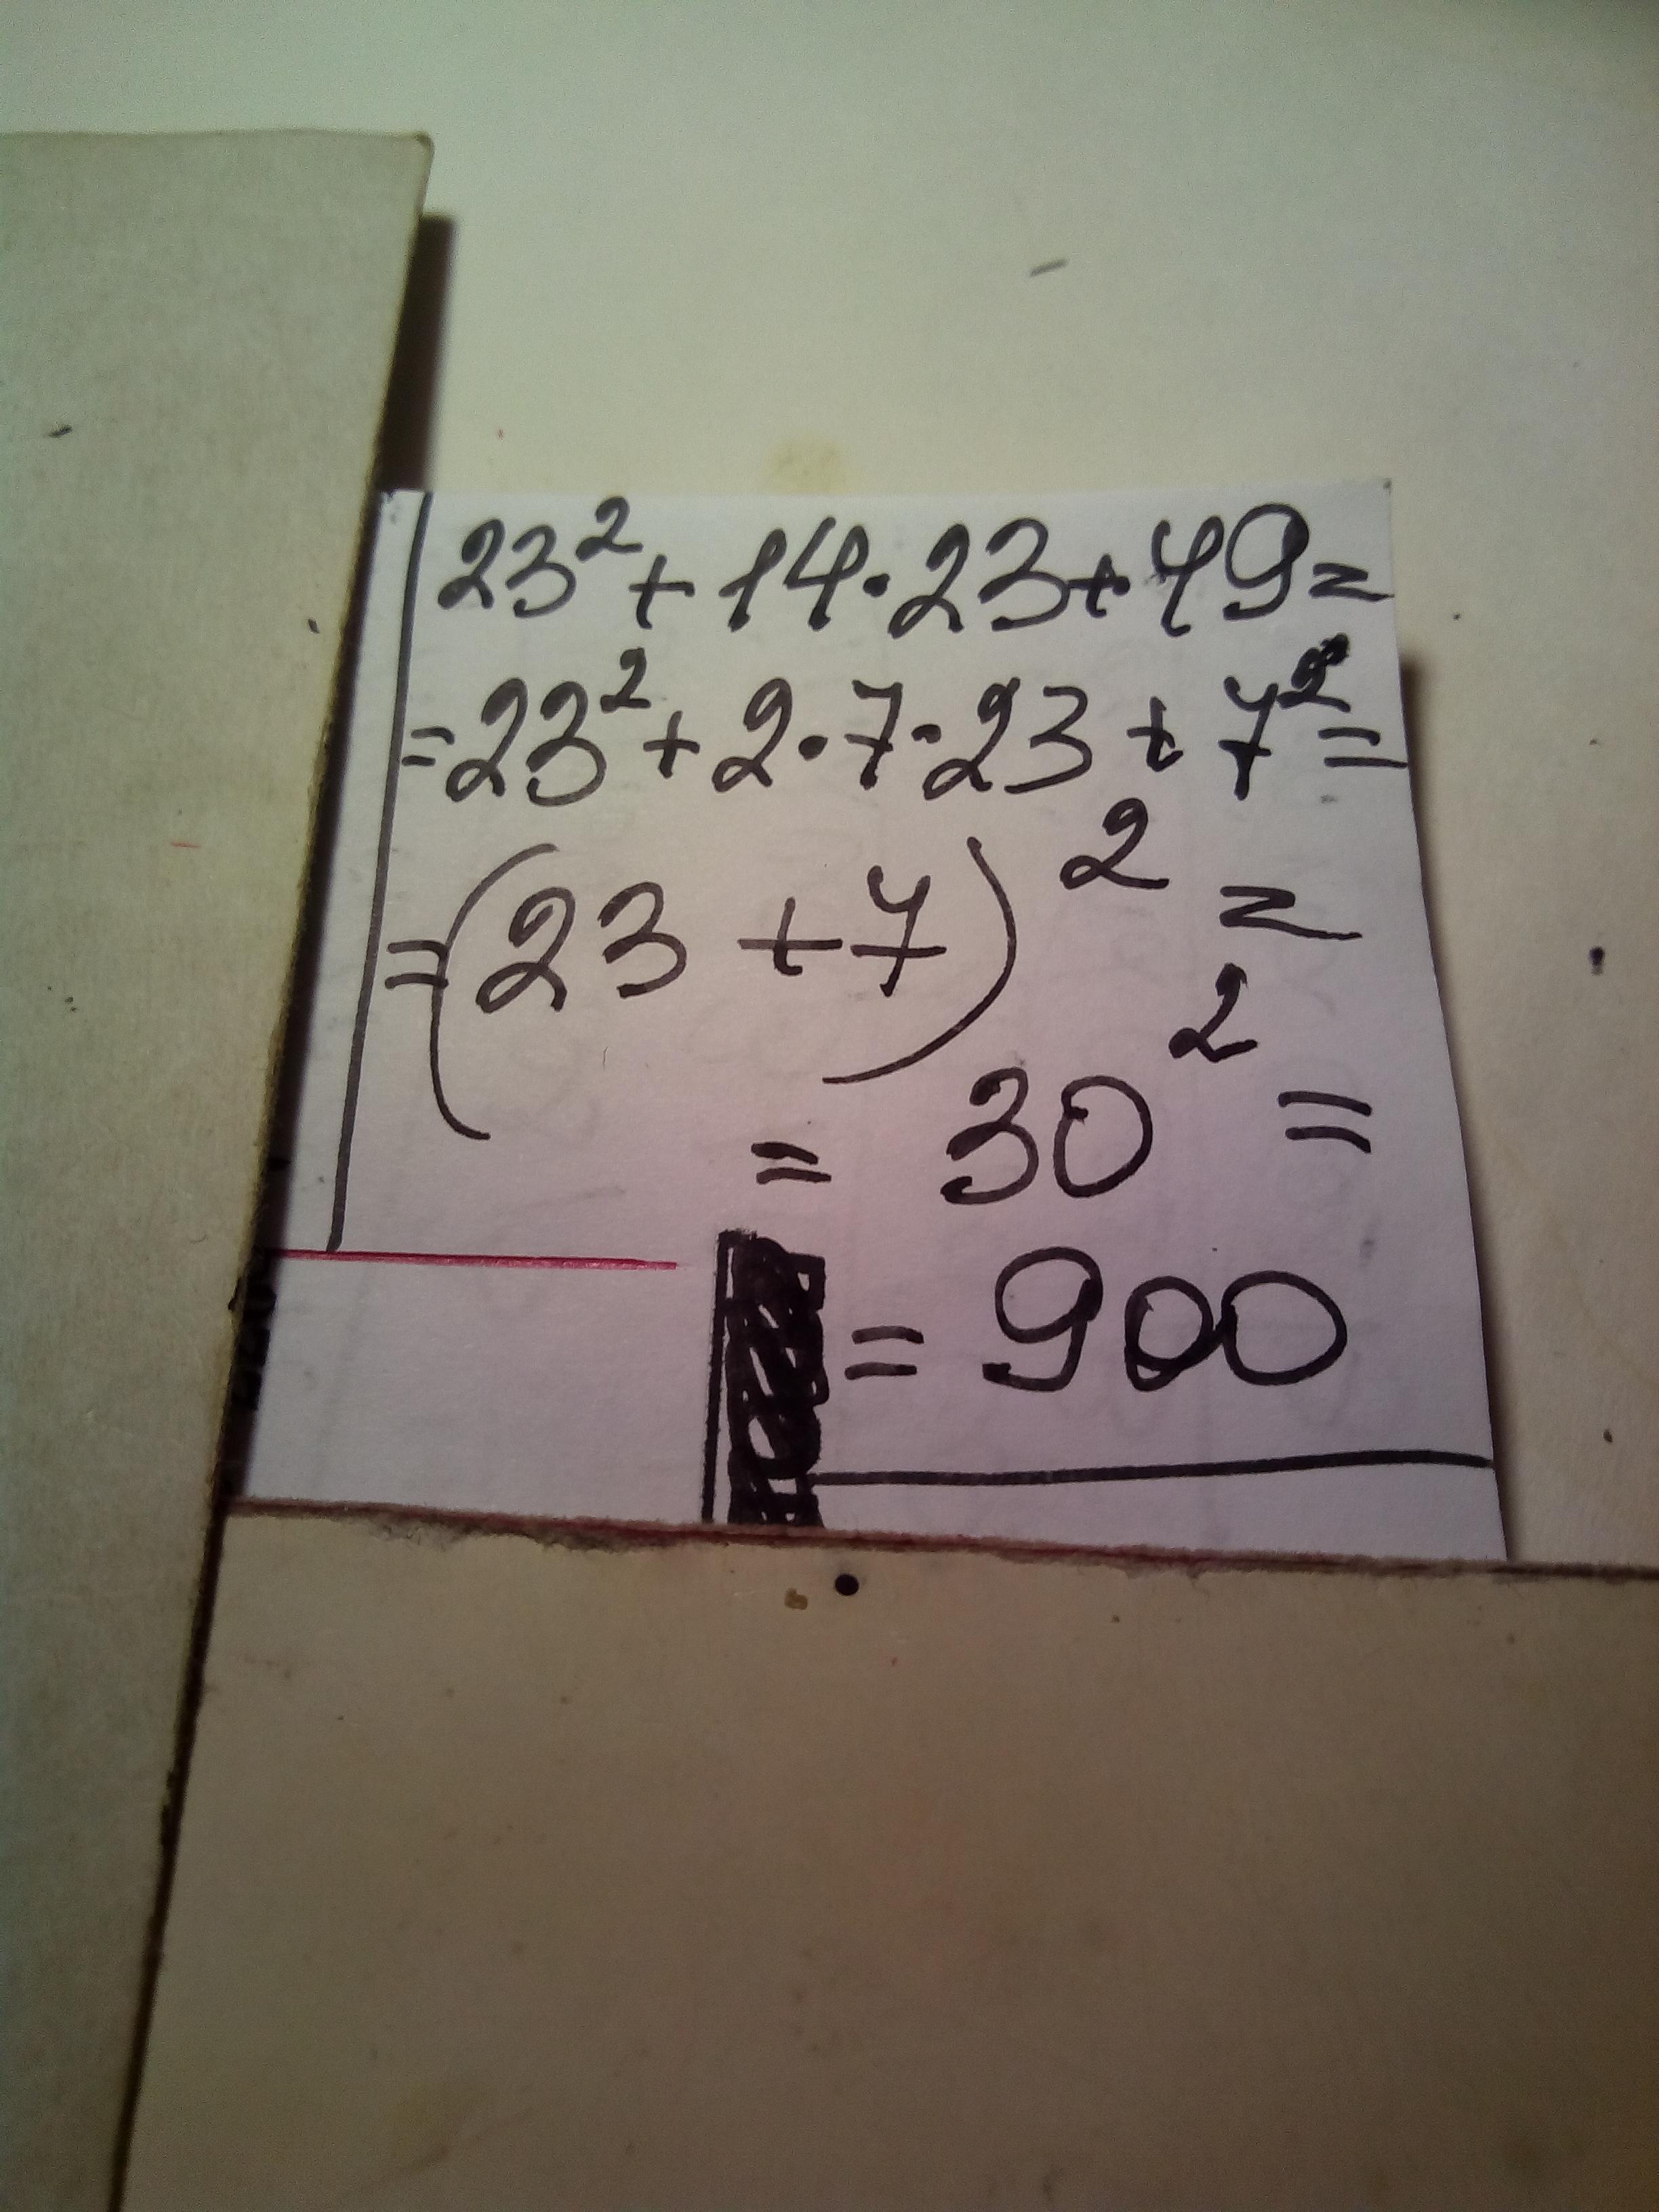 23² + 14·23 + 49 =
= 23² + 2·7·23 + 7² =
= (23 + 7)² =
= 30² =
= 900